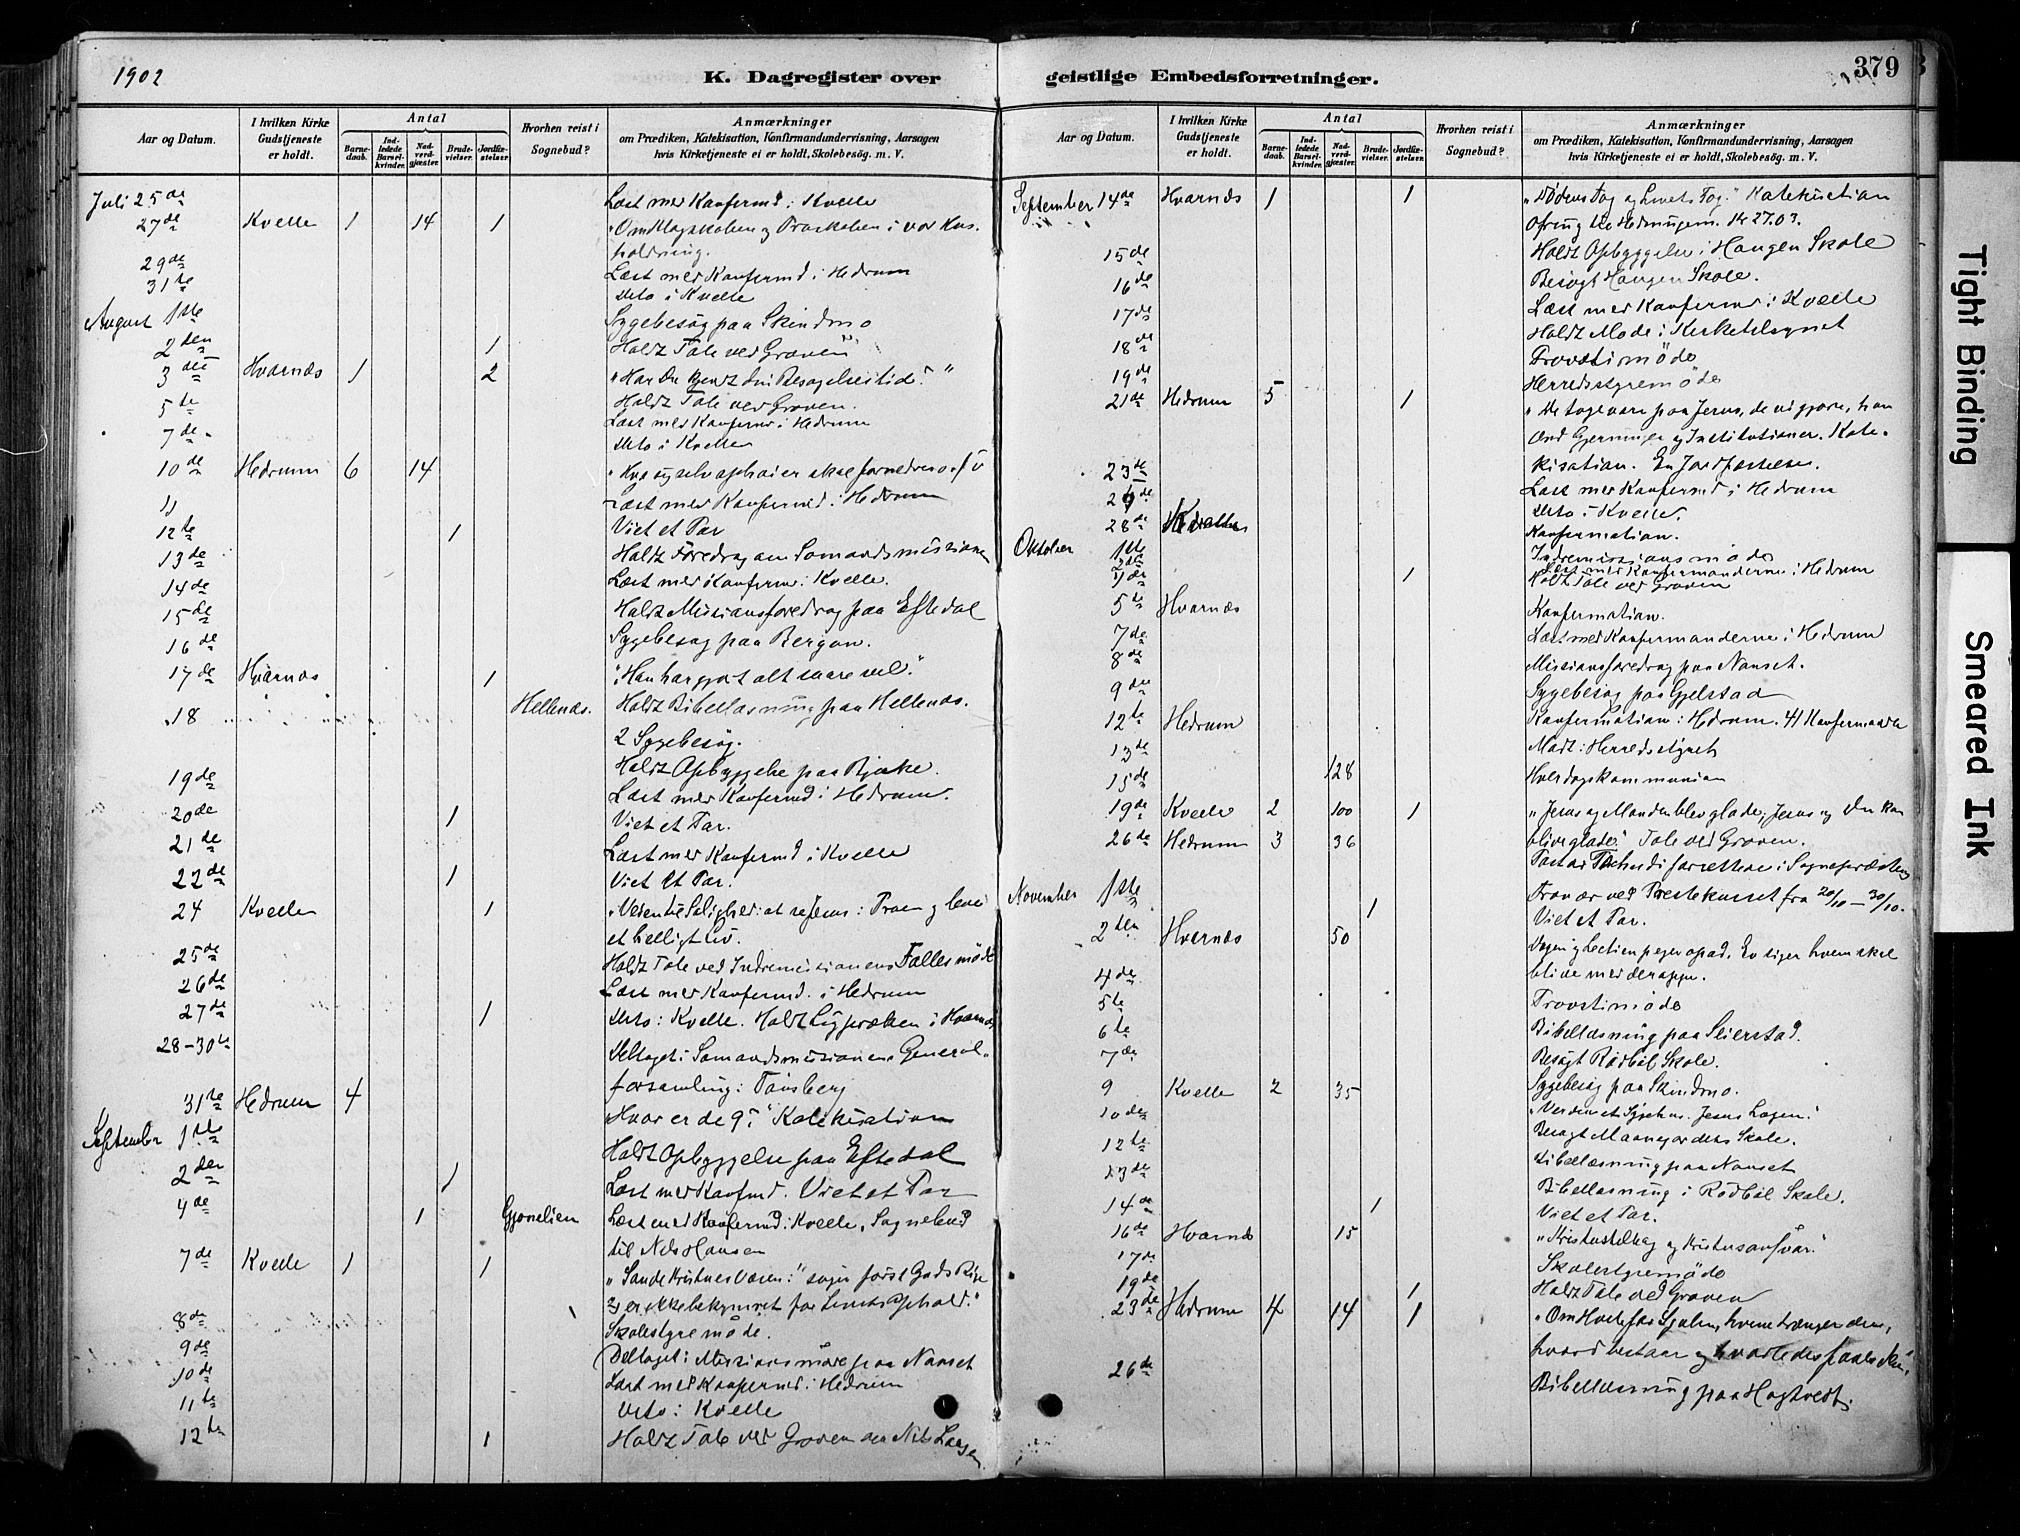 1902
K. Dagregister over geistlige Embedsforretninger.
379
Aar og Datum.
I hvilken Kirke Gudstjeneste er holdt.
Antal
Barnedaab.
Indledede Barselkvinder.
Nadverdgjæster.
Brudevielser.
Jordfæstelser.
Hvorhen reist i Sognebud?
Anmærkninger
om Prædiken, Katekisation, Konfirmandundervisning, Aarsagen
hvis Kirketjeneste ei er holdt, Skolebesög. m. V.
Juli 25de Læst med Konfirmd i Kvelle
27de Kvelle 1 14 1 holdning.
29de Læst med Konfirmd i Hedrum
31te Dito i Kvelle
August 1ste Sygebesøg paa Skindmo
2den 1 Holdt Tale ved Graven
3die Hvarnæs 1 2 "Har du kjendt din Besøgelsestid?"
5te Holdt Tale ved Graven.
Læst med Konfirmd i Hedrum
7de Dito i Kvelle
10de Hedrum 6 14
11 Læst med Konfirmd i Hedrum
12te 1 Viet et Par
13de Holdt Foredrag om Sømandsmissionen
14de Læst med Konfirmd i Kvelle.
15de Holdt Missionsforedrag paa Eftedal
16de Sygebesøg paa Bergan.
17de Hvarnæs 1 "Han har gjort alt saare vel."
18 Hellenæs. Holdt Bibellæsning paa Hellenæs.
2 Sygebesøg.
19de Holdt Opbyggelse paa Bjerke.
Læst med Konfirmd i Hedrum.
20de 1 Viet et Par.
21de Læst med Konfirmd i Kvelle
22de 1 Viet et Par.
24 Kvelle 1 "Veien til Salighed: at se Jesus: Troen og leve
et helligt Liv.
25de Holdt Tale ved Indremissionens Fællesmøde
26de Læst med Konfirmd. i Hedrum
27de 1 Dito i Kvelle. Holdt Ligprædken i Hvarnæs
28-30te Deltaget i Sømandsmissionens General-
forsamling i Tønsberg
31te Hedrum 4 "Hvor er de 9?" Katekisation
September 1ste Holdt Opbyggelse paa Eftedal
2den 1 Læst med Konfmd. Viet et Par
4de 1 Gjønelien Læst med Konfirmd i Kvelle, Sognebud
til Nils Hansen
7de Kvelle 1 1 søger først Guds Rige
og er ikke bekymret for Livets Ophold."
8de Skolestyremøde.
9de Deltaget i Missionsmøde paa Nanset
10de Læst med Konfirmd i Hedrum
11te Dito i Kvelle
12te 1 Holdt Tale ved Graven over Nils Larsen
Aar og Datum.
I hvilken Kirke Gudstjeneste er holdt.
Antal
Barnedaab.
Indledede Barselkvinder.
Nadverdgjæster.
Brudevielser.
Jordfæstelser.
Hvorhen reist i Sognebud?
Anmærkninger
om Prædiken, Katekisation, Konfirmandundervisning, Aarsagen
hvis Kirketjeneste ei er holdt, Skolebesög. m. V.
September 14de Hvarnæs 1 1 "Dødens Tog og Livets Tog." Katekisation
Kr 27.03.
15de Holdt Opbyggelse i Haugen Skole
16de Besøgt Haugen Skole.
17de Læst med Konfirmd i Kvelle
Holdt Møde i Kirketilsynet
18de Provstimøde
19de Herredsstyremøde
21de Hedrum 5 1
Gjerninger og Institutioner. Kate-
kisation. En Jordfæstelse.
23de Læst med Konfirmd i Hedrum
Dito i Kvelle.
28de Kvelle Konfirmation.
Oktober 1ste Indremissionsmøde
2den Læst med Konfirmanderne i Hedrum
4de 1 Holdt Tale ved Graven
5te Hvarnæs Konfirmation.
7de Læst med Konfirmanderne i Hedrum
8de Missionsforedrag paa Nanset.
9de Sygebesøg paa Gjelstad
12te Hedrum Konfirmation i Hedrum. 41 Konfirmander
13de Mødt i Herredsstyret
15de 128 Hverdagskommunion
19de Kvelle 2 100 1 "Jesus og Manden blev glade; Jesus og du kan
blive glade." Tale ved Graven.
26de Hedrum 3 36
Fravær ved Prestekurset fra 20/10 - 30/10.
November 1ste 1 Viet et Par.
2den Hvarnæs 50
blive med deroppe.
4de Provstimøde
5te Bibellæsning paa Seierstad.
6te Besøgt Rødbøl Skole.
7de Sygebesøg paa Skindmo.
9 Kvelle 2 35 "Verden et Sygehus. Jesus Lægen."
10de Besøgt Skole.
12te Bibellæsning paa Nanset
13de Bibellæsning i Rødbøl Skole.
14de 1 Viet et Par.
16de Hvarnæs 15
17de Skolestyremøde
19de 1 Holdt Tale ved Graven
23de Hedrum 4 14 1 "Om Hvile for Sjælen, hvem trænger dem,
26de Bibellæsning paa Hogtvedt.
Tight Binding
Smeared Ink